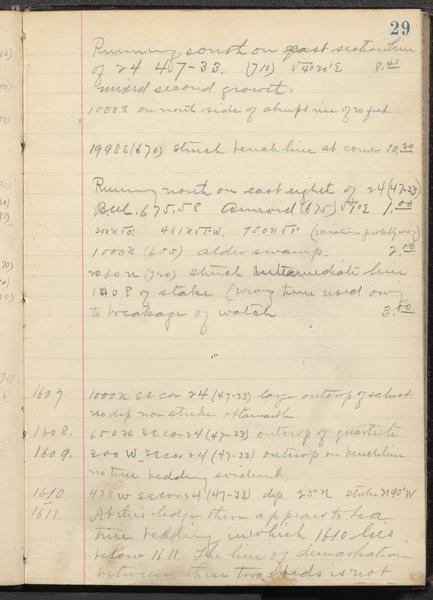 29
Running south on east section line
of 24 47-33. (710) V 4°30'E 8.40
mixed second growth.
1000 S on north side of abrupt rise of 20 feet.
1998 S (670) struck bench line at corner 10.20
Running north on east eighth of 24 (47-33)
B.M. 675.58 Aneroid (675) V 1°E 1.00
300 N 461 N 750 N (variation probably wrong)
1000 N (655) alder swamp. 2.00
2060 N (720) struck intermediate line
140 E of stake (wrong time used owing
to breakage of watch 3.00
1607 1000 N SE cor 24 (47-33) large outcrop of schist
no dip nor strike obtainable
1608. 650 N SE cor 24 (47-33) outcrop of quartzite
1609. 200 W SE cor 24 (47-33) outcrop on bench line
no true bedding evident.
1610 425 W SE cor 24 (47-33) dip. 23° N strike N 90° W
1611 At this ledge there appears to be a
true bedding in which 1610 lies
below 1611. The line of demarkation
between these two beds is not